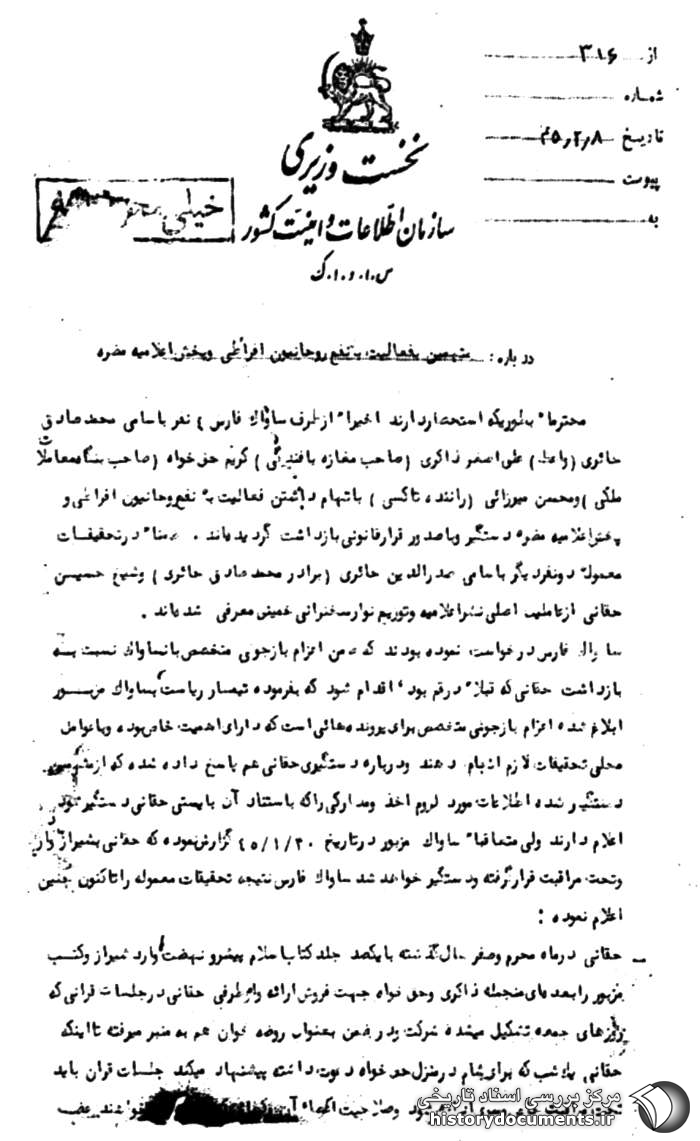 از ۳۱۶
شماره
تاریخ ۴۵٫۲٫۸
پیوست
به
نخست وزیری
سازمان اطلاعات و امنیت کشور
س.ا.و.ا.ک
خیلی
درباره : متهمین بفعالیت بنفع روحانیون افراطی و پخش اعلامیه مضره
محترما" بطوریکه استحضار دارند اخیرا" از طرف ساواک فارس ۴ نفر باسامی محمد صادق
حائری (واعظ) علی اصغر ذاکری (صاحب مغازه بافندگی) کریم حق خواه (صاحب بنگاه معاملات
ملکی) و محسن میرزائی (راننده تاکسی) باتهام داشتن فعالیت به نفع روحانیون افراطی و
پخش اعلامیه مضره دستگیر و با صدور قرار قانونی بازداشت گردیده‌اند . ضمنا" در تحقیقات
معموله دو نفر دیگر باسامی صدرالدین حائری (برادر محمد صادق حائری) و شیخ حسین
حقانی از عاملین اصلی نشر اعلامیه و توزیع نوار سخنرانی خمینی معرفی شده‌اند .
ساواک فارس درخواست نموده بودند که ضمن اعزام بازجوئی متخصص بآنساواک نسبت به
بازداشت حقانی که قبلا" در قم بوده اقدام شود که بفرموده تیمسار ریاست بساواک مزبور
ابلاغ شده اعزام بازجوئی متخصص برای پرونده‌هائی است که دارای اهمیت خاص بوده و با عوامل
محلی تحقیقات لازم انجام دهند و درباره دستگیری حقانی هم پاسخ داده شده که از
دستگیر شده اطلاعات مورد لزوم اخذ و مدارکی را که باستناد آن بایستی حقانی دستگیر شود
اعلام دارند ولی متعاقبا" ساواک مزبور در تاریخ ۴۵/۱/۳۰ گزارش نموده که حقانی بشیراز وارد
و تحت مراقبت قرار گرفته و دستگیر خواهد شد ساواک فارس نتیجه تحقیقات معموله را تاکنون چنین
اعلام نموده :
ـ حقانی در ماه محرم و صفر سال گذشته با یکصد جلد کتاب اسلام پیشرو نهضت وارد شیراز و کتب
مزبور را بعده‌ای منجمله ذاکری و حق خواه جهت فروش ارائه و از طرفی حقانی در جلسات قرآنی که
روزهای جمعه تشکیل میشده شرکت و در ضمن بعنوان روضه خوان هم به منبر میرفته تا اینکه
حقانی یک شب که برای شام در منزل حق خواه دعوت داشته پیشنهاد میکند جلسات قرآن باید
و صلاحیت
مرکز بررسی اسناد تاریخی
historydocuments.ir